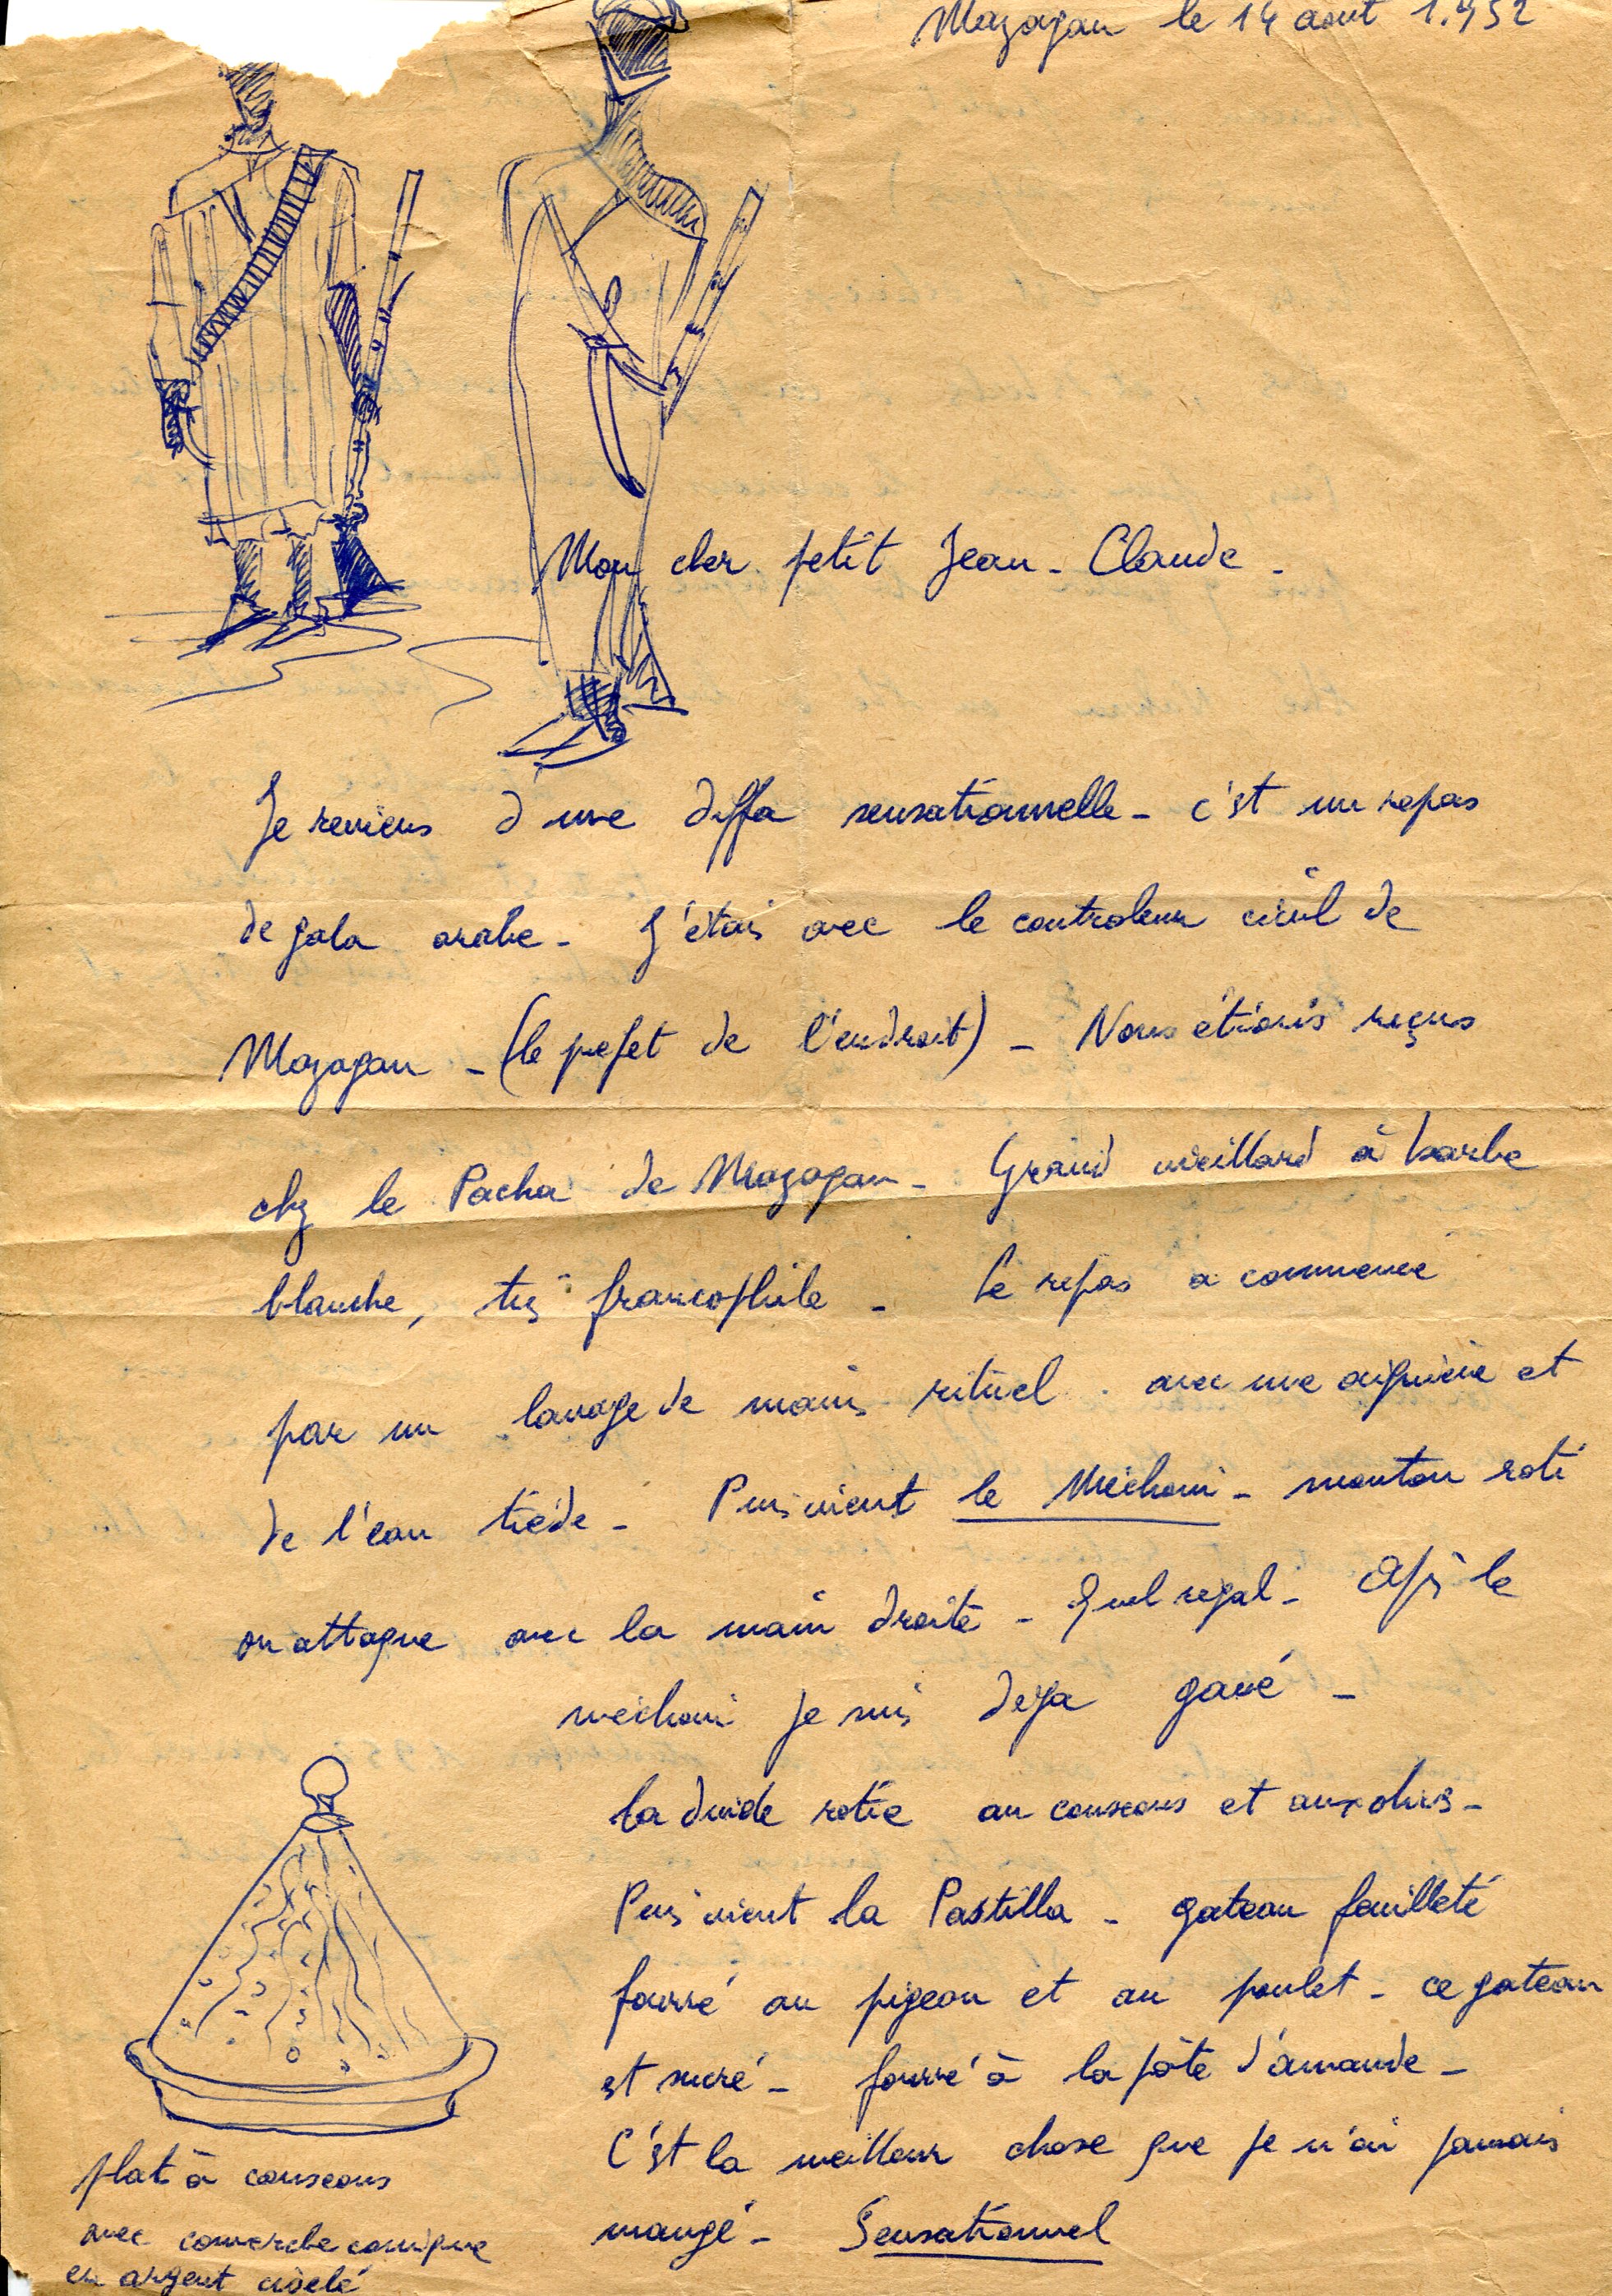 Mazagan le 14 aout 1.952
Mon cher petit Jean-Claude -
Je reviens d'une diffa sensationnelle - c'est un repas
de gala arabe - J'étais avec le controleur civil de
Mazagan - (le prefet de l'endroit) - Nous étions reçus
chez le Pacha de Mazagan - Grand vieillard à barbe
blanche, très francophile - Le repas a commencé
par un lavage de mains rituel . avec une aiguière et
de l'eau tiède - Puis vient le Mechoui - mouton roti
on attaque avec la main droite - Quel regal - Après le
mechoui je suis deja gavé -
la dinde rotie au couscous et aux olives -
Puis vient la Pastilla - gateau feuilleté
fourré au pigeon et au poulet - ce gateau
est sucré - fourré à la pâte d'amande -
C'est la meilleur chose que je n'ai jamais
mangé - Sensationnel
plat à couscous
avec couvercle conique
en argent ciselé